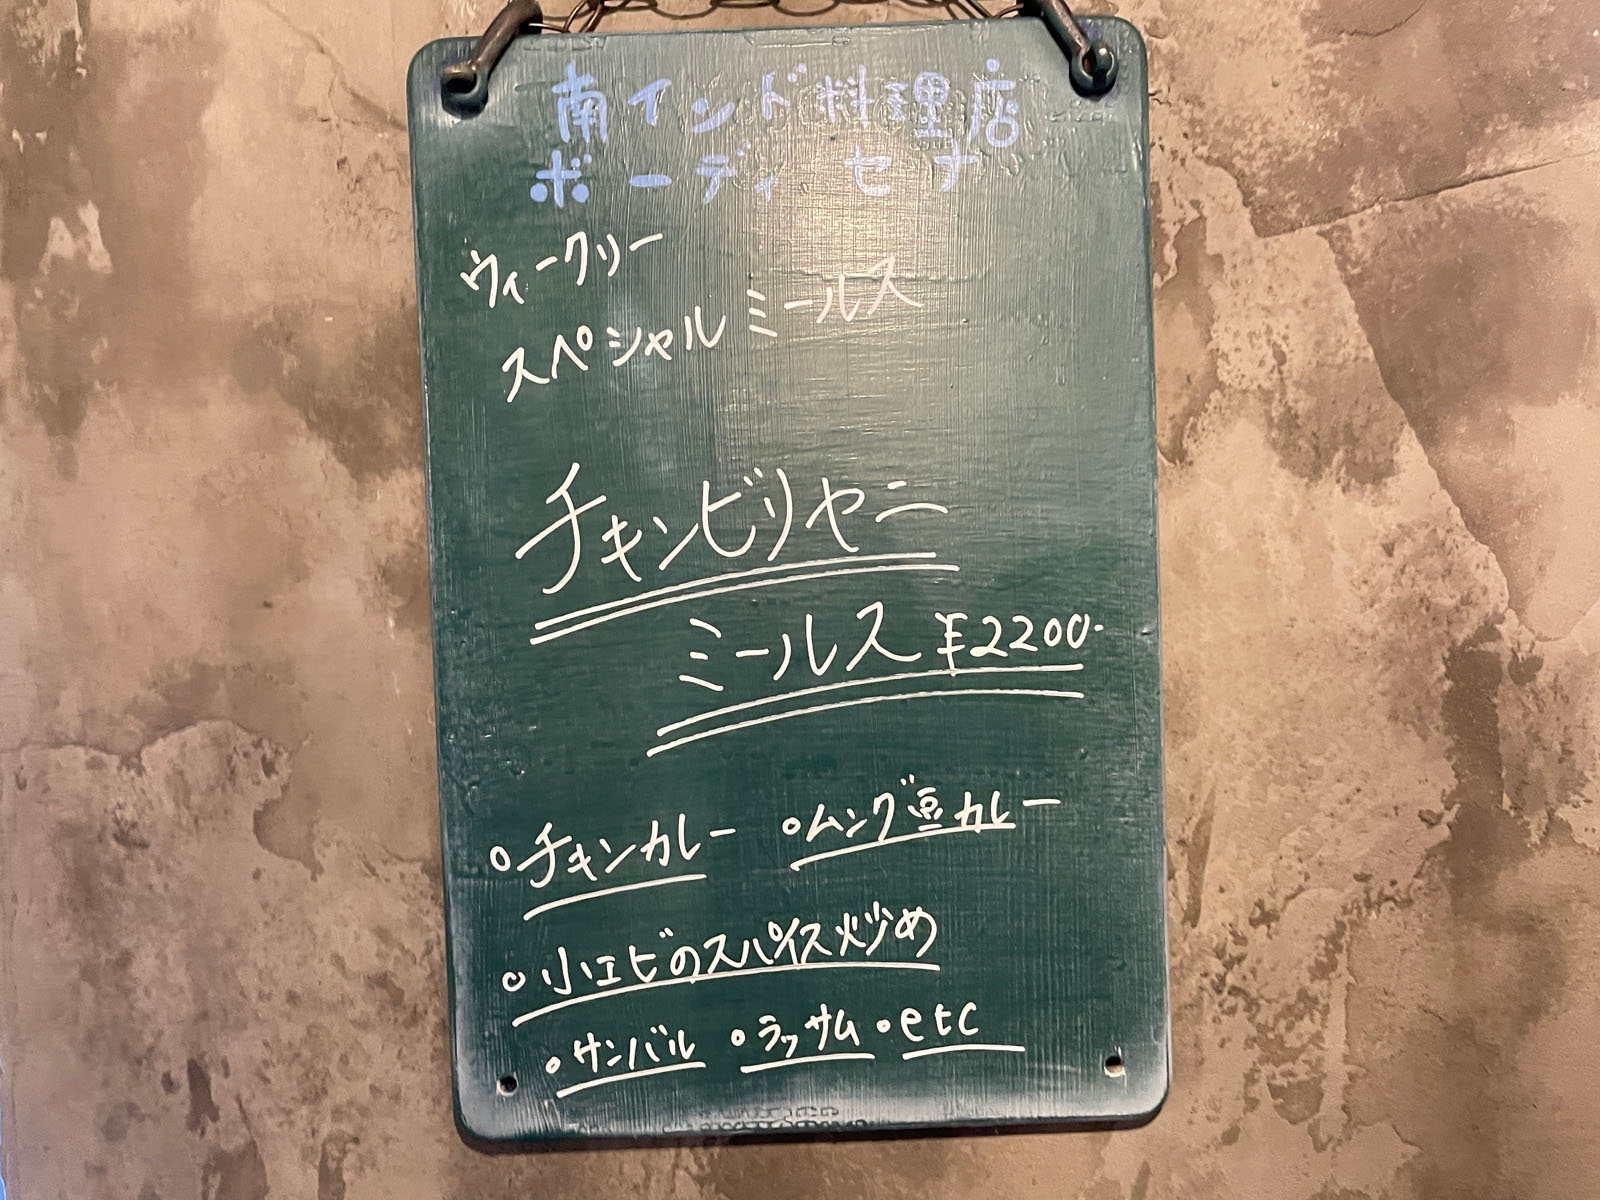 南インド料理店
ボーディセナ
ウィークリー
スペシャルミールス
チキンビリヤニ
ミールス ¥2200-
○チキンカレー ○ムング豆カレー
○小エビのスパイス炒め
○サンバル ○ラッサム ○etc